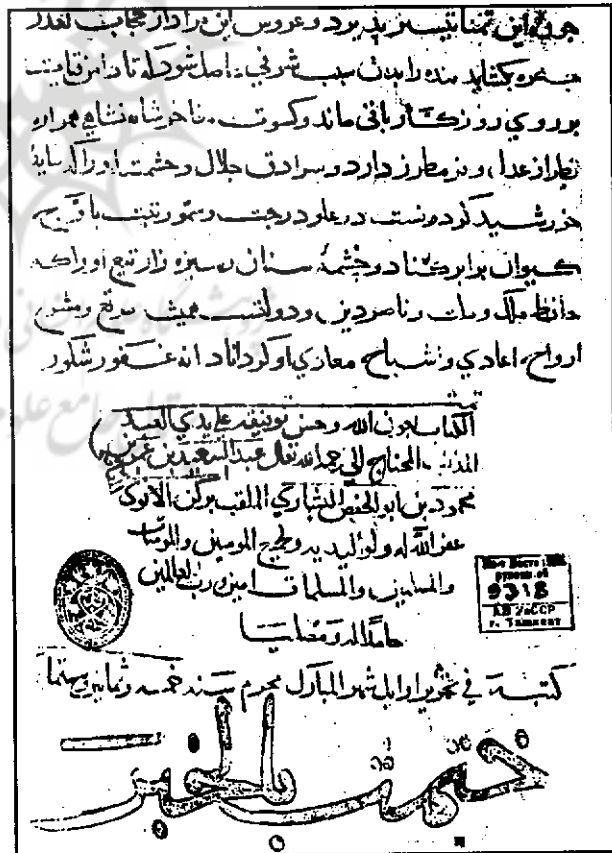 چون این تمنا تیسیر پذیرد و عروس این مراد از حجاب تعذر
چهره بکشاید بنده را بدان سبب شرفی حاصل شود که تا دامن قیامت
بر روی روزگار باقی ماند و کسوت
از عدل و مطرز دارد و سرادق جلال و حشمت او را که سایهٔ
خورشید کردونست در علو درجت و سمو رتبت با اوج
کیوان برابر کناد و چشمهٔ سنان و سبزه زار تیغ او را که
حافظ ملک و ملت و ناصر دین و دولتست همیشه مرتع و مشرع
ارواح اعادی و اشباح معادی او کرداناد انه غفور شکور
الکتاب بعون الله وحسن توفیقه علی یدی العبد
المذنب المحتاج الی رحمة الله تعالی عبد السعید بن عمر بن
محمود بن ابو الملقب برکن
غفر الله له ولوالدیه ولجمیع المومنین والمومنات
والمسلمین والمسلمات امین رب العالمین
حامدا لله ومصلیا
کتبته فی اوایل شهر المبارک محرم سنه خمسه وثمانین
9318
г. Ташкент
ختمت بالخیر